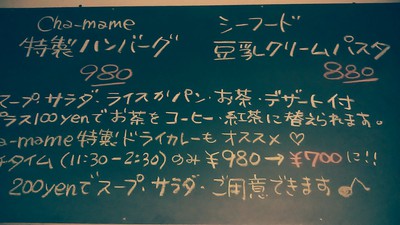 Cha-mame シーフード
特製ハンバーグ 豆乳クリームパスタ
980 880
スープ・サラダ・ライスかパン・お茶・デザート付
プラス100yenでお茶をコーヒー・紅茶に替えられます。
a-mame特製ドライカレーもオススメ♡
チタイム(11:30-2:30)のみ¥980→¥700に!!
200yenでスープ・サラダ・ご用意できます